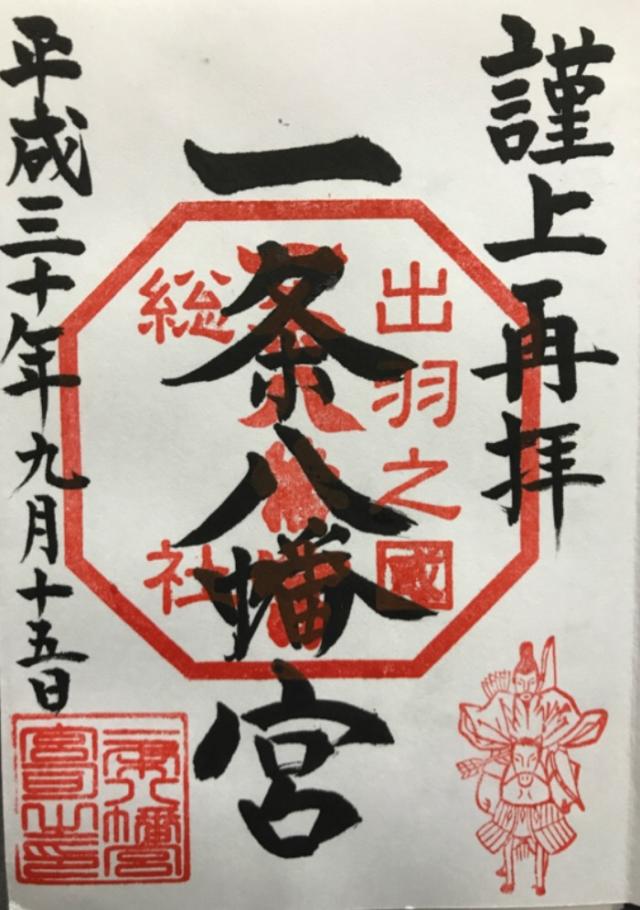 謹上再拝
出羽之國
一条八幡宮
総社
平成三十年九月十五日